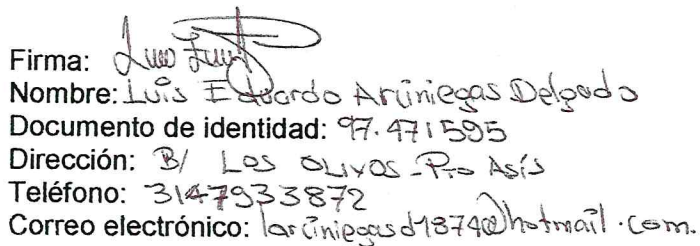 Firma:
Nombre: Luis Eduardo Arciniegas Delgado
Documento de identidad: 97.471595
Dirección: B/ Los OLIVOS - Pto Asís
Teléfono: 3147933872
Correo electrónico: larciniegasd1874@hotmail.com.